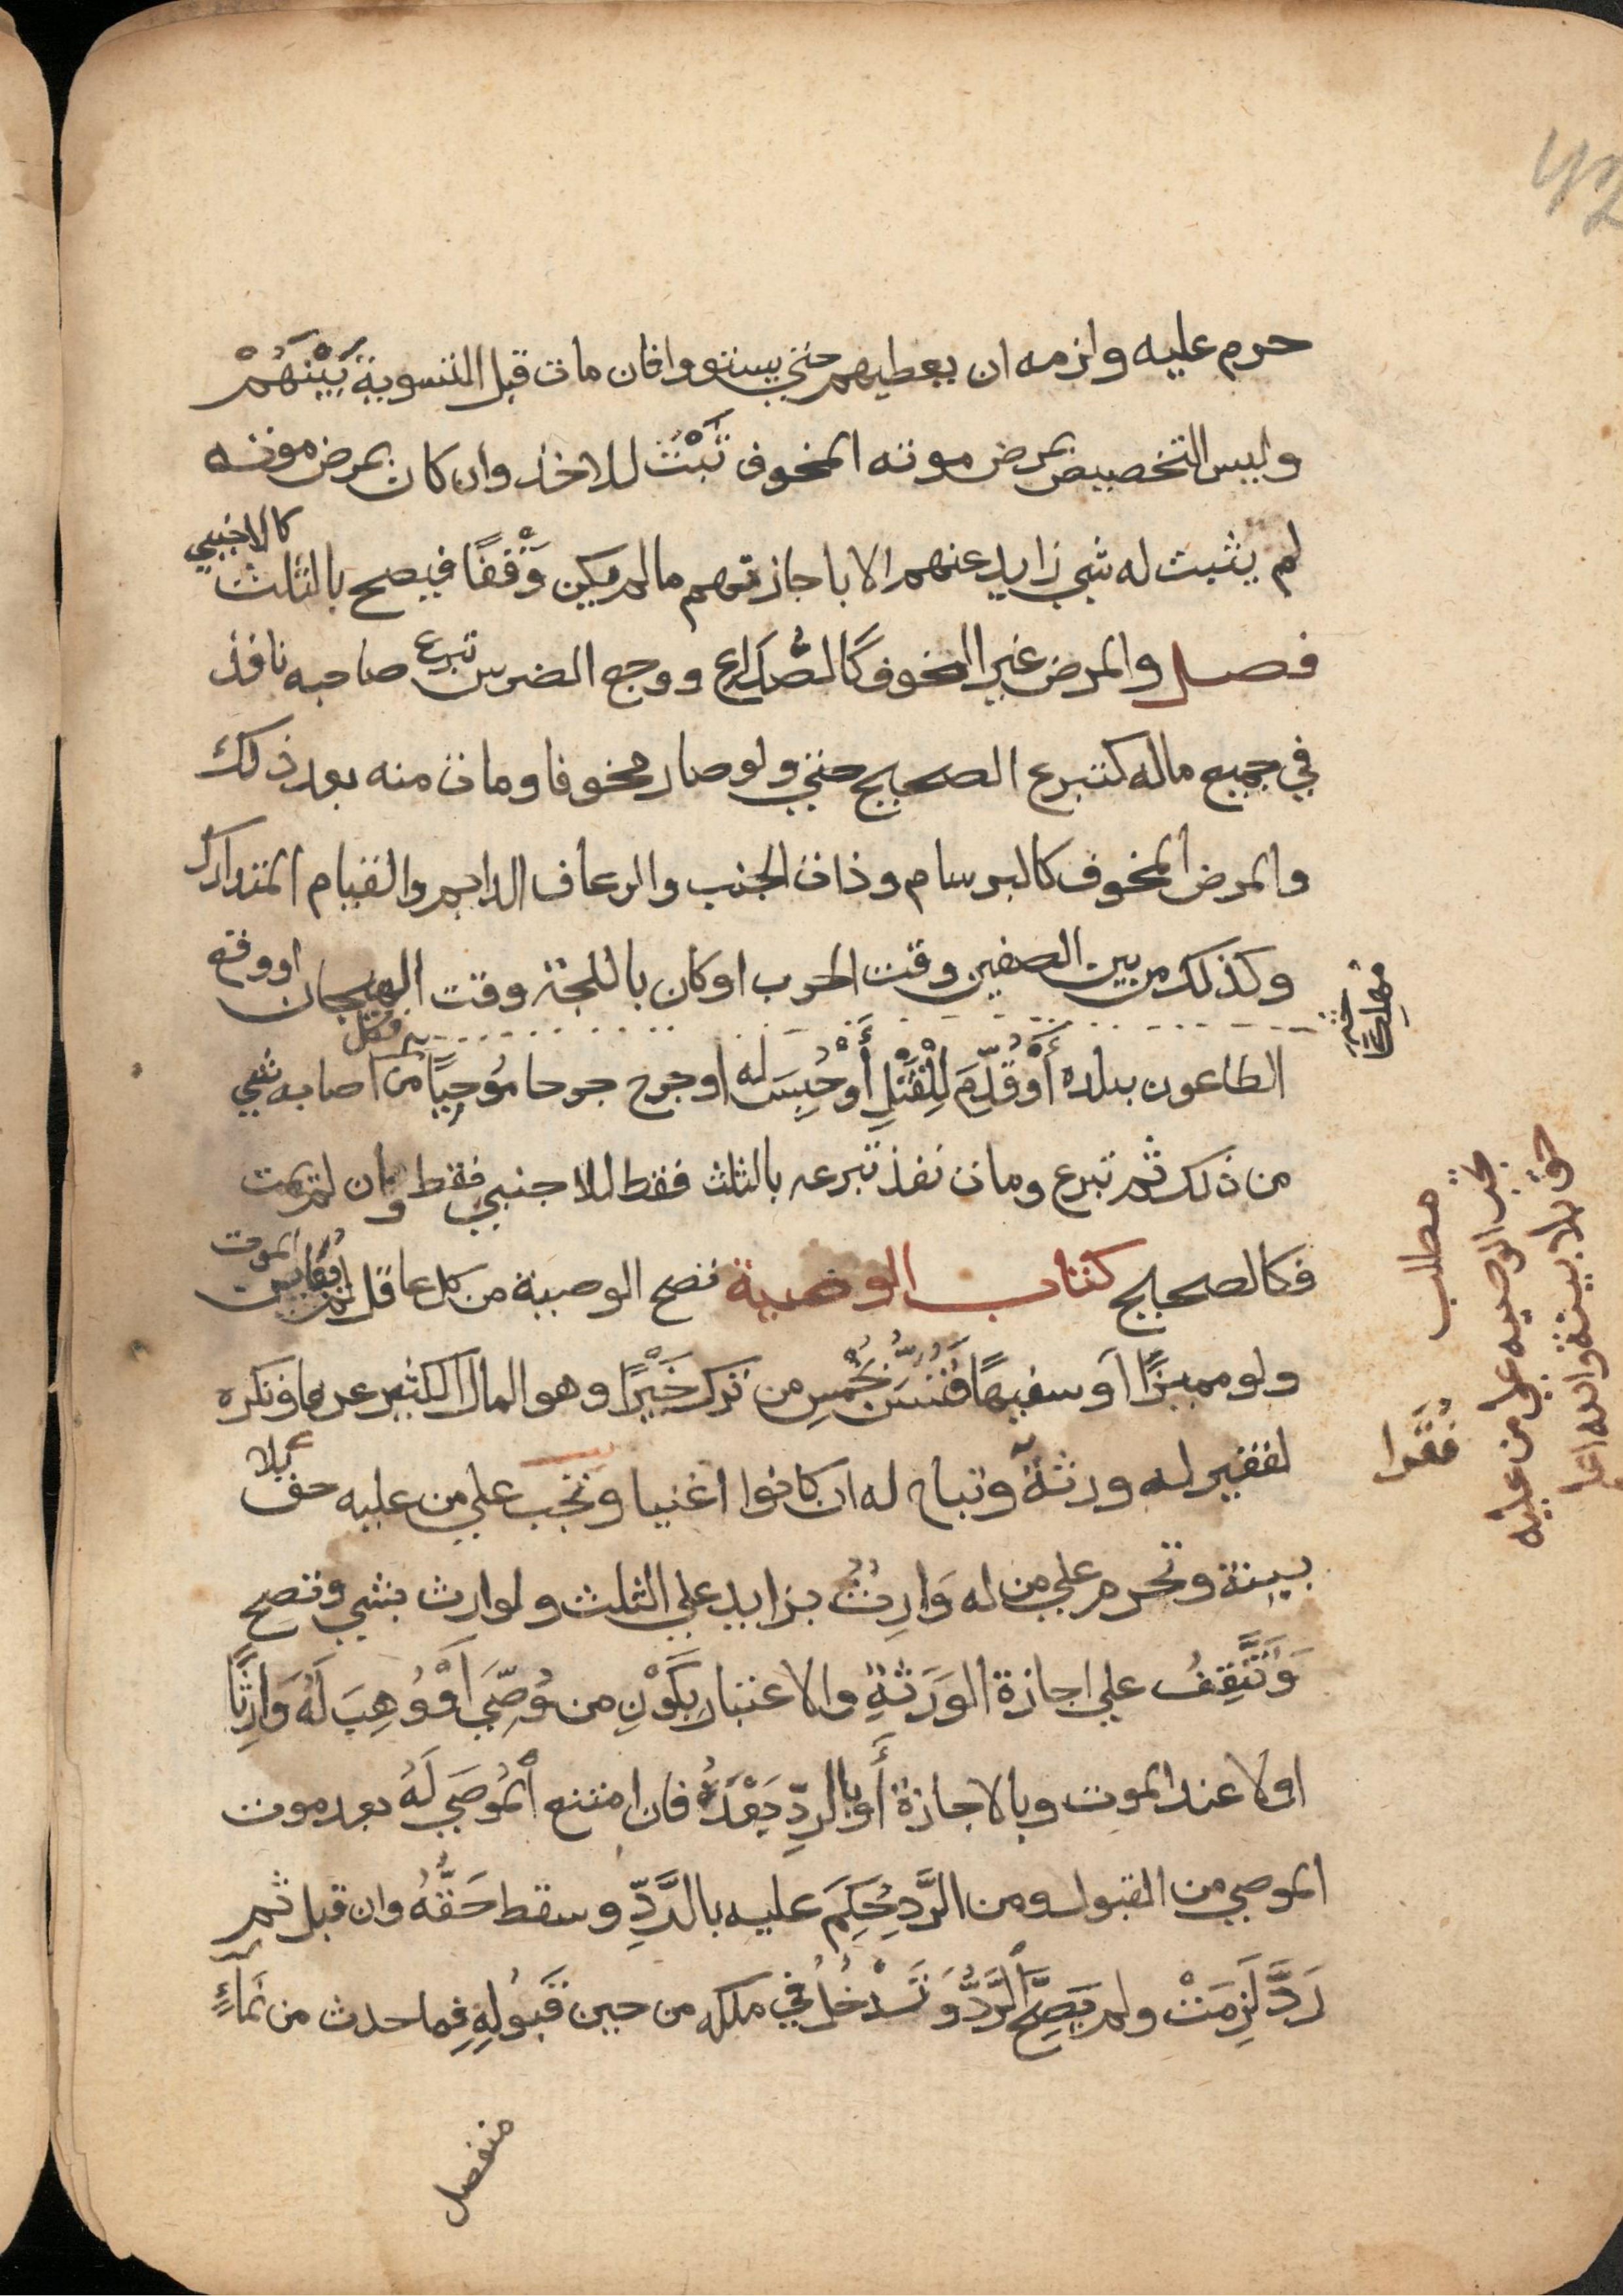 حرم عليه ولزمه ان يعطيهم حتى يستووا فان مات قبل التسوية بَيْنَهُمْ
وليس التخصيص بمرض موته المخوف ثَبَتَ للاخذ وان كان بمرض موته
لم يثبت له شي زايد عنهم الا باجازتهم مالم يكن وَقْفًا فيصح بالثلث كالاجنبي
فصل والمرض غير المخوف كَالصُّدَاعِ ووجع الضرس تبرع صاحبه نافذ
في جميع ماله كتبرع الصحيح حتي ولو صار مخوفا ومات منه بعد ذلك
والمرض المخوف كالبرسام وذات الجنب والرعاف الدايم والقيام المتدارك
وكذلك من بين الصفين وقت الحرب او كان باللجة وقت الهيجان او وقع
الطاعون ببلده أَوْ قُدِّمَ لِلْقَتْلِ أَوْ حُبِسَ له او جرح جرحا مُوحِيًا فكل من اصابه شي
من ذلك ثم تبرع ومات نفذ تبرعه بالثلث فقط للاجنبي فقط وان لم يمت
فكالصحيح كتاب الوصية تصح الوصية من كل عاقل لم يعاين الموت
ولو مميزًا أو سفيهًا فَتُسَنُّ بِخُمْسِ من ترك خَيْرًا وهو المال الكثير عرفا وتكره
لفقير له ورثةٌ وتباح له ان كانوا اغنيا وتجب علي من عليه حق بلا
بينة وتحرم علي من له وَارِثٌ بزايد علي الثلث ولوارث بشي وتصح
وَتَقِفُ علي اجازة الوَرَثَةِ والاعتبار بِكَوْنِ من وُصِّيَ أَوْ وُهِبَ لَهُ وَارِثًا
اولا عند الموت وبالاجازة أَو بالردِّ بَعْدَهُ فان امتنع المُوصَي لَهُ بعد موت
الموصي من القبول ومن الرَّدِ حُكِمَ عليه بالرَّدِّ وسقط حَقُّهُ وان قبل ثم
رَدَّ لَزِمَتْ ولم يَصِحَّ الرَّدُّ وَتَدْخُلُ في ملكه من حين قَبُولِهِ فما حدث من نَمَاءٍ
منفصل
مطلب
تجب الوصيه علي من عليه
حق بلا بينة والله اعلم
فُقَرا